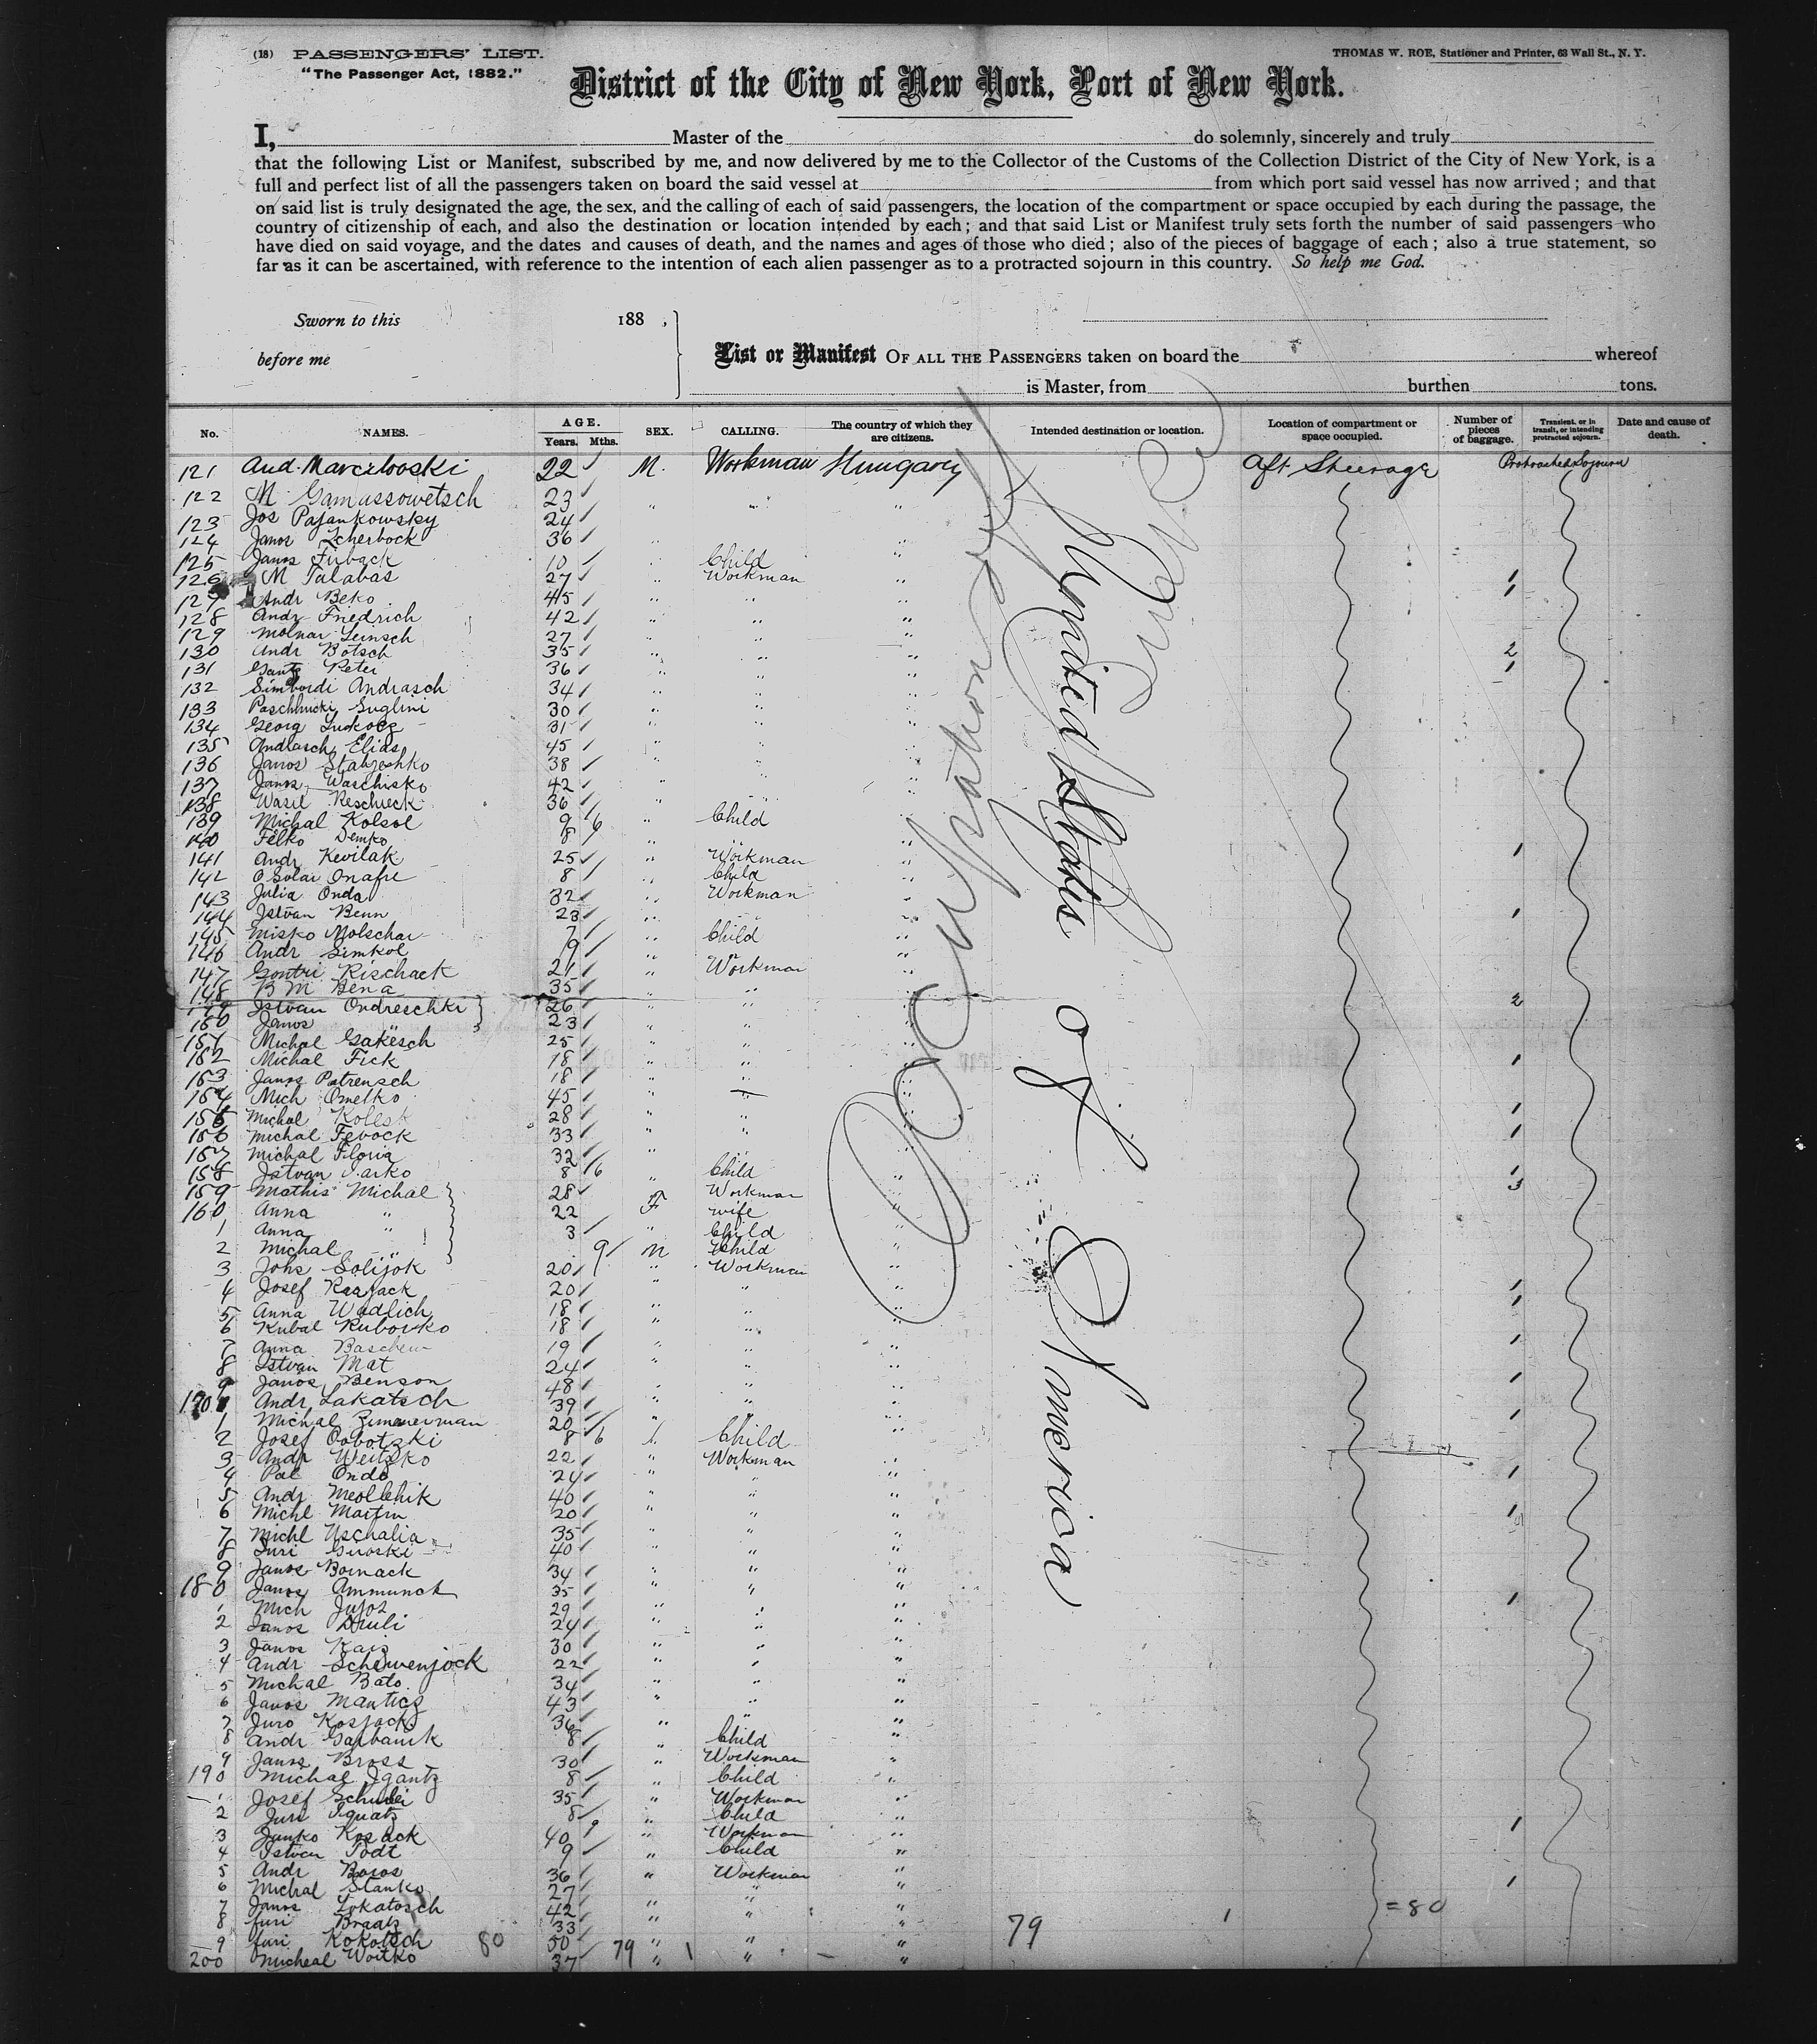 (18) PASSENGERS' LIST.
THOMAS W. ROE, Stationer and Printer, 63 Wall St., N. Y.
"The Passenger Act, 1882."
District of the City of New York, Port of New York.
I, Master of the do solemnly, sincerely and truly
that the following List or Manifest, subscribed by me, and now delivered by me to the Collector of the Customs of the Collection District of the City of New York, is a
full and perfect list of all the passengers taken on board the said vessel at from which port said vessel has now arrived; and that
on said list is truly designated the age, the sex, and the calling of each of said passengers, the location of the compartment or space occupied by each during the passage, the
country of citizenship of each, and also the destination or location intended by each; and that said List or Manifest truly sets forth the number of said passengers who
have died on said voyage, and the dates and causes of death, and the names and ages of those who died; also of the pieces of baggage of each; also a true statement, so
far as it can be ascertained, with reference to the intention of each alien passenger as to a protracted sojourn in this country. So help me God.
Sworn to this 188 ,
before me
List or Manifest OF ALL THE PASSENGERS taken on board the whereof
is Master, from burthen tons.
No. NAMES. AGE. Years. Mths. SEX. CALLING. The country of which they are citizens. Intended destination or location. Location of compartment or space occupied. Number of pieces of baggage. Transient, or in transit, or intending protracted sojourn. Date and cause of death.
121 And. Marcilooski 22 M. Workman Hungary Aft Steerage Protracted Sojourn
122 M Gamussowetsch 23 " " "
123 Jos Pajankowsky 24
124 Janos Zcherbock 36 "
125 Janos 10 Child "
126 M Talabas 27 " Workman " 1
127 Andr Beko 45 " " " 1
128 Andr Friedrich 42 " " "
129 Molnar Leinsch 27 " " "
130 Andr Botsch 35 " " " 2
131 Gantz Peter 36 " " " 1
132 Simbordi Andrasch 34 " " "
133 Suglini 30 " " "
134 Georg 31 " " "
135 Andrasch Elias 45 " " "
136 Janos 38 " " "
137 Janos Waschisko 42 " " "
138 Wasil Reschieck 36 " " "
139 Michal Kolsol 9 6 " Child "
140 Felko Demko 8 " " "
141 Andr Kevilak 25 " Workman " 1
142 Onafre 8 " Child "
143 Julia Onda 32 " Workman "
144 Istvan Benn 23 " " " 1
145 Misko Molschar 7 " Child "
146 Andr Simkol 9 " " "
147 Rischack 21 " Workman "
148 B M Bena 35 " " "
149 Istvan Ondreschki 26 " " " 2
150 Janos " 23 " " "
151 Michal Gakesch 25 " " "
152 Michal Fick 18 " " " 1
153 Janos Patrensch 18 " " "
154 Mich Omelko 45 " " "
155 Michal 28 " " " 1
156 Michal Fevock 33 " " " 1
157 Michal Floria 32 " " "
158 Istvan 8 6 " Child " 1
159 Mathis Michal 28 Workman " 3
160 Anna " 22 F wife "
1 Anna " 3 " Child "
2 Michal " 9 M Child "
3 Johs Solijok 20 " Workman "
4 Josef 20 " " " 1
5 Anna Wadlich 18 " " " 1
6 Kubal Ruborko 18 " " "
7 Anna 19 " " " 1
8 Istvan Mat 24 " " "
9 Janos Benson 48 " " " 1
170 Andr Lakatsch 39 " " "
1 Michal Zimmerman 20 " " " 1
2 Josef 8 6 " Child "
3 Andr Weitzko 22 " Workman "
4 Pal Onda 24 " " " 1
5 Andr 40 " " "
6 Michl Martin 20 " " " 1
7 Michl Uschalia 35 " " "
8 Juri 40 " " "
9 Janos Bornack 34 " " "
180 Janos Ammunck 35 " " "
1 Mich 29 " " " 1
2 Janos 24 " " "
3 Janos Kais 30 " " "
4 Andr Schewenjock 22 " " "
5 Michal Bato. 34 " " "
6 Janos Mantics 43 " " "
7 Juro Kosjack 36 " " "
8 Andr 8 " Child "
9 Janos Bross 30 " Workman "
190 Michal Igantz 8 " Child "
1 Josef 35 " Workman "
2 Juri Iquatz 8 " Child "
3 Janko Kosack 40 " Workman " 1
4 Istvan Todt 9 " Child "
5 Andr Boros 36 " Workman "
6 Michal Stanko 27 " " " 1
7 Janos Lokatosch 42 " " " = 80
8 Juri Braatz 33 " " " 79 1
9 Juri Kokotsch 80 50 79 " 1 " "
200 Micheal Woitko 37 " " "
United States of America